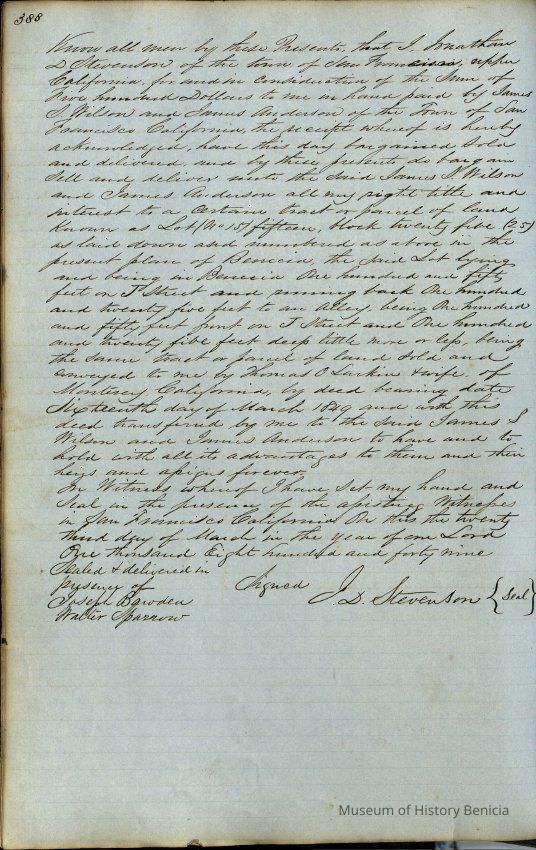 388
Know all men by these Presents, that I. Jonathan
D Stevenson of the town of San Francisco, upper
California, for and in consideration of the Sum of
Five hundred Dollars to me in hand paid by James
S. Wilson and James Anderson of the Town of San
Francisco California, the receipt whereof is hereby
acknowledged, have this day bargained, sold
and delivered, and by these presents do bargain
Sell and deliver unto the said James S Wilson
and James Anderson all my right title and
interest to a certain tract or parcel of land
known as Lot (No 15) fifteen, block twenty five (25)
as laid down and numbered as above in the
present plan of Benicia, the said Lot lying
and being in Benicia One hundred and fifty
feet on J Street and running back One hundred
and twenty five feet to an Alley, being One hundred
and fifty feet front on J Street and One hundred
and twenty five feet deep little more or less, being
the same tract or parcel of land sold and
conveyed to me by Thomas O Larkin & wife, of
Monterey California, by deed bearing date
Sixteenth day of March 1849 and with this
deed transferred by me to the said James S
Wilson and James Anderson to have and to
hold with all its advantages to them and their
heirs and assigns forever.
In Witness whereof I have set my hand and
Seal in the presence of the Witnesses
in San Francisco California On this the twenty
third day of March in the year of our Lord
One thousand Eight hundred and forty nine
Sealed & delivered in
presence of
Signed J. D. Stevenson {Seal}
Joseph Bowden
Walter Sparrow
Museum of History Benicia